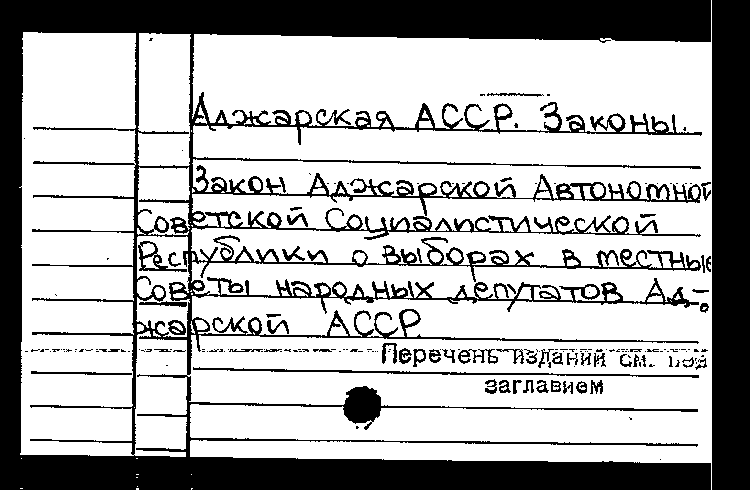 Аджарская АССР. Законы.
Закон Аджарской Автономной
Советской Социалистической
Республики о выборах в местные
Советы народных депутатов Ад-
жарской АССР
Перечень изданий см. под
заглавием